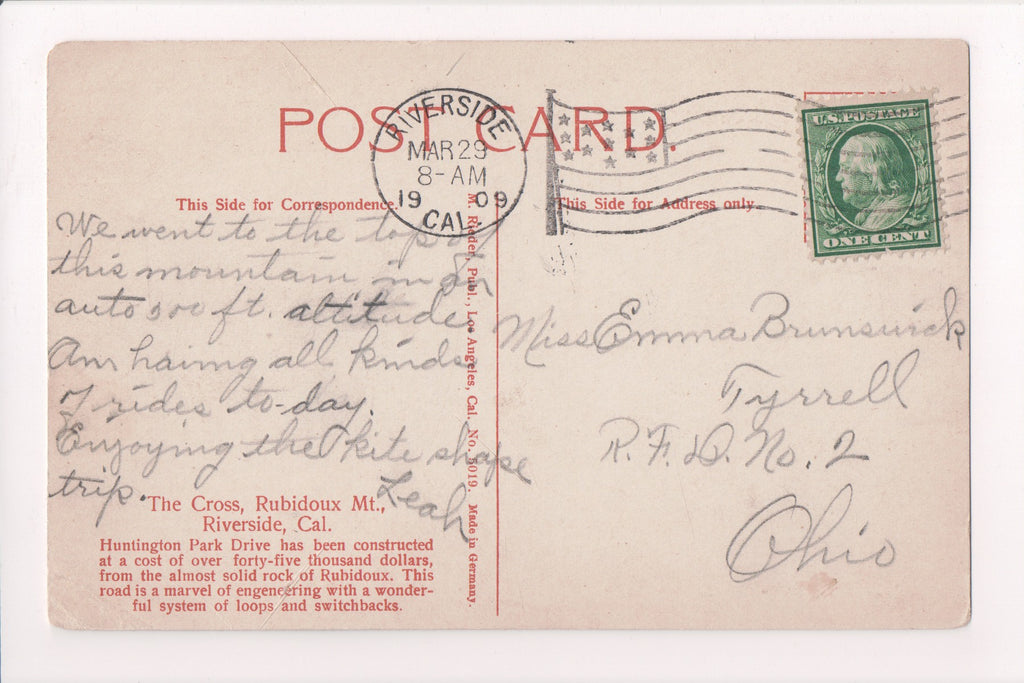 POST CARD.
RIVERSIDE
MAR 29
8-AM
19 09
CAL.
U.S. POSTAGE
ONE CENT
This Side for Correspondence.
This Side for Address only
We went to the top of
this mountain in an
auto 500 ft. altitude
Am haimg all kinds
of rides to-day.
Enjoying the kite shape
trip. Leah
Miss Emma Brunswick
Tyrrell
R.F.D. No. 2
Ohio
The Cross, Rubidoux Mt.,
Riverside, Cal.
Huntington Park Drive has been constructed
at a cost of over forty-five thousand dollars,
from the almost solid rock of Rubidoux. This
road is a marvel of engeneering with a wonder-
ful system of loops and switchbacks.
M. Rieder, Publ., Los Angeles, Cal. No. 5019. Made in Germany.